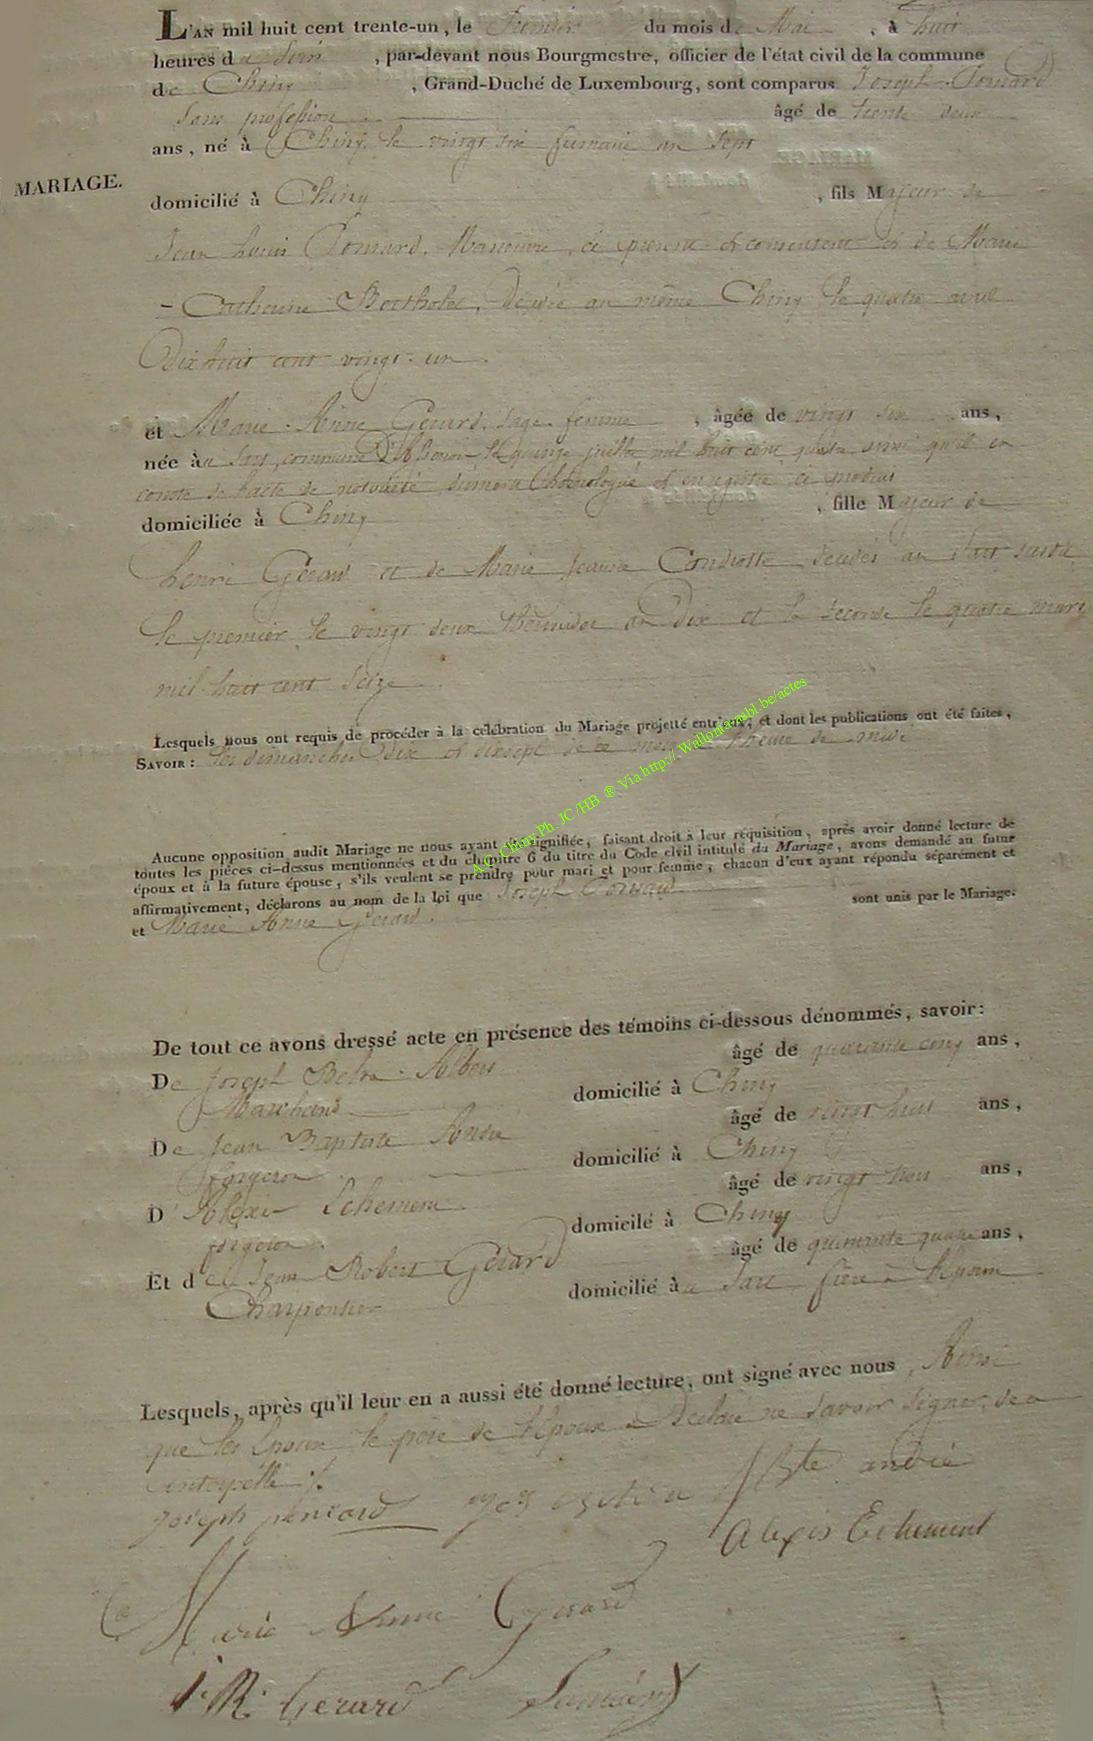 L'AN mil huit cent trente-un, le Premier du mois de Mai, à huit
heures du Soir, par-devant nous Bourgmestre, officier de l'état civil de la commune
de Chiny, Grand-Duché de Luxembourg, sont comparus Joseph
Sans profession âgé de trente deux
ans, né à Chiny, le vingt six frimaire an Sept
MARIAGE.
domicilié à Chiny, fils Majeur de
Jean Louis Manœuvre, ci présent et consentant et de Marie
Catherine décédée au même Chiny le quatre avril
Dix huit cent vingt-un.
et Marie Anne Gérard, Sage femme, âgée de vingt six ans,
née à u Sart, commune le quinze juillet mil huit cent quatre ainsi qu'il en
conste de l'acte de notoriété
domiciliée à Chiny, fille Majeur de
henri Gérard et de Marie Jeanne décédés au Sart susdit
le premier le vingt deux thermidor an Dix et la seconde le quatre mars
mil huit cent Seize
Lesquels nous ont requis de procéder à la célébration du Mariage projetté entr'eux, et dont les publications ont été faites,
SAVOIR : les dimanches dix et dixsept de ce mois à l'heure de midi
Aucune opposition audit Mariage ne nous ayant été signifiée, faisant droit à leur réquisition, après avoir donné lecture de
toutes les pièces ci-dessus mentionnées et du chapitre 6 du titre du Code civil intitulé du Mariage, avons demandé au futur
époux et à la future épouse, s'ils veulent se prendre pour mari et pour femme, chacun d'eux ayant répondu séparément et
affirmativement, déclarons au nom de la loi que Joseph
sont unis par le Mariage.
et Marie Anne Gérard.
A.C. Chiny Ph JC/HB ® Via http://Wallonia.asbl.be/actes
De tout ce avons dressé acte en présence des témoins ci-dessous dénommés, savoir:
De Joseph âgé de quarante cinq ans,
Marchand domicilié à Chiny
De Jean Baptiste André âgé de vingt huit ans,
forgeron domicilié à Chiny
D'Alexis Echement âgé de vingt ans,
forgeron. domicilé à Chiny
Et de Jean Robert Gérard âgé de quarante quatre ans,
Charpentier domicilié à u Sart frère à l'épouse
Lesquels, après qu'il leur en a aussi été donné lecture, ont signé avec nous, Ainsi
que les Epoux, le père de l'époux a Déclaré ne Savoir Signer, de ce
interpellé ./.
Joseph JBte andré
Alexis Echement
Marie Anne Gerard
J. R. Gerard